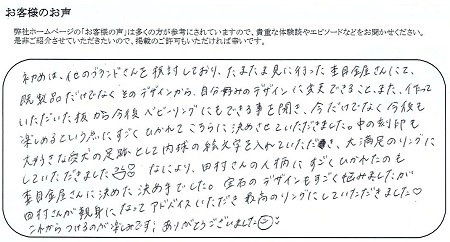 お客様のお声
弊社ホームページの「お客様の声」は多くの方が参考にされていますので、貴重な体験談やエピソードなどをお聞かせください。
是非ご紹介させていただきたいので、掲載のご許可もいただければ幸いです。
初めは、他のブランドさんを検討しており、たまたま見に行った杢目金屋さんにて、
既製品だけでなくそのデザインから、自分好みのデザインに変更できること、また、作って
いただいた板から今後ベビーリングにもできる事を聞き、今だけでなく今後も
楽しめるという点にすごくひかれてこちらに決めさせていただきました。中の刻印も
大好きな愛犬の足跡として肉球の絵文字を入れていただき、大満足のリングに
していただきました。なにより、田村さんの人柄にすごくひかれたのも
杢目金屋さんに決めた決め手でした。宝石のデザインもすごく悩みましたが
田村さんが親身になってアドバイスいただき最高のリングにしていただきました♡
これからつけるのが楽しみです!ありがとうございました